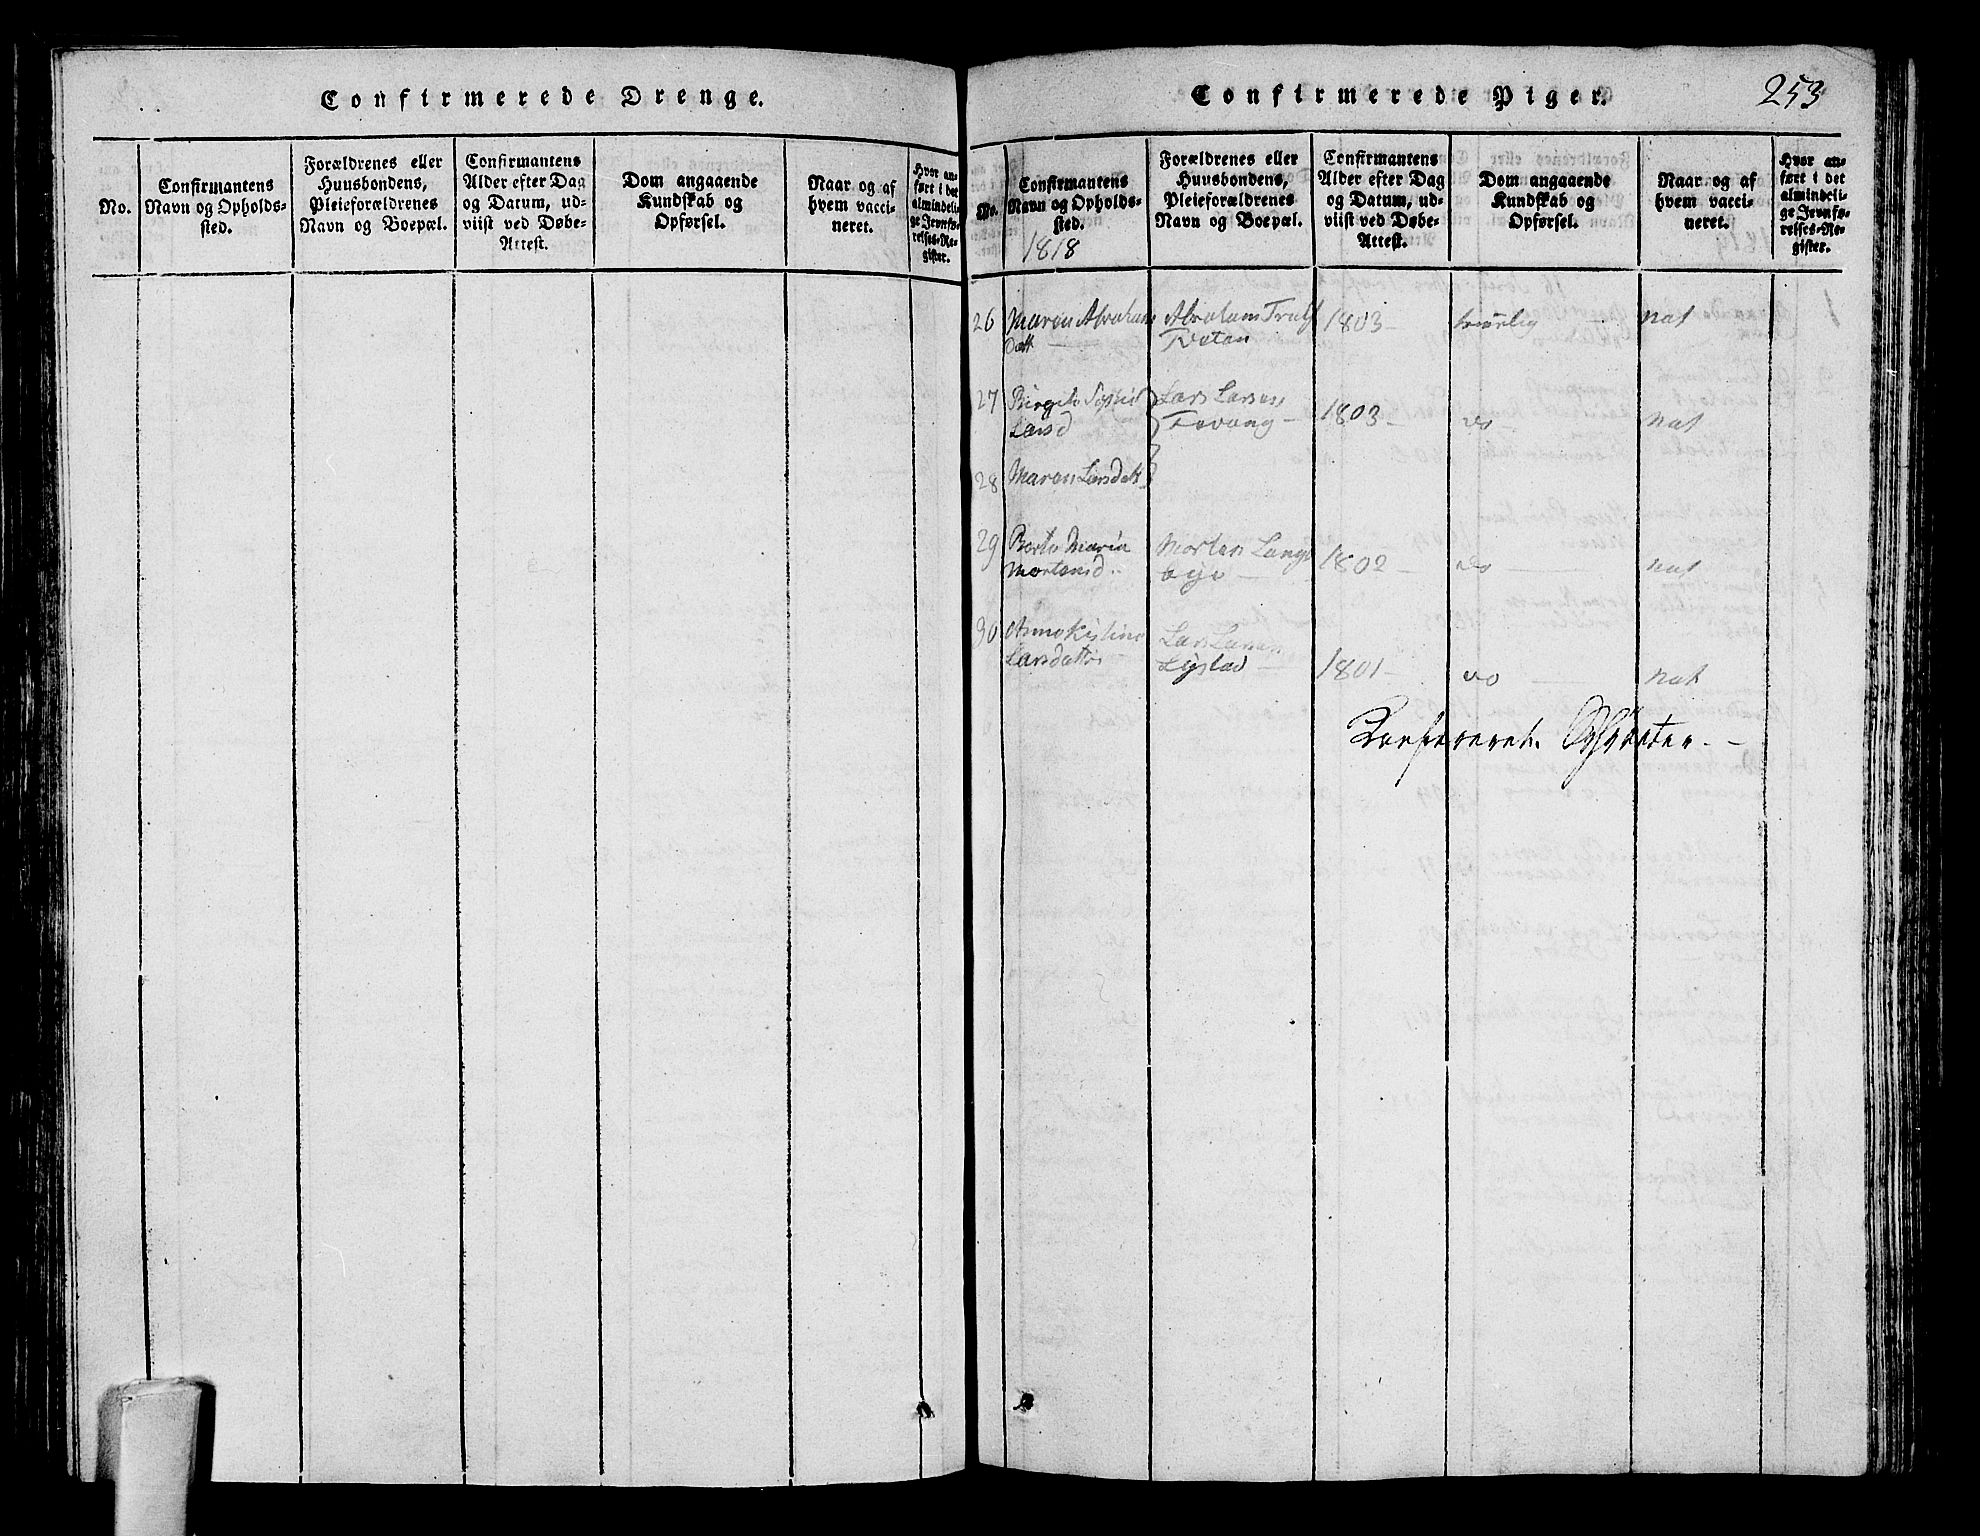 Confirmerede Drenge.
No.
Confirmantens
Navn og Opholds-
sted.
Forældrenes eller
Huusbondens,
Pleieforældrenes
Navn og Boepæl.
Confirmantens
Alder efter Dag
og Datum, ud-
viist ved Døbe-
Attest.
Dom angaaende
Kundskab og
Opførsel.
Naar og af
hvem vacci-
neret.
Hvor an-
ført i det
almindeli-
ge Jevnfø-
relses-Re-
gister.
Confirmerede Piger.
253
No.
Confirmantens
Navn og Opholds-
sted.
1818
Forældrenes eller
Huusbondens,
Pleieforældrenes
Navn og Boepæl.
Confirmantens
Alder efter Dag
og Datum, ud-
viist ved Døbe-
Attest.
Dom angaaende
Kundskab og
Opførsel.
Naar og af
hvem vacci-
neret.
Hvor an-
ført i det
almindeli-
ge Jevnfø-
relses-Re-
gister.
26 Maren Abrahams Abraham 1803 - nat
Datt
27 Lars Larsen
Larsd 1803 - do nat
28 Maren Larsdatt
29 Berte Maria Morten Lang
Mortensd. bye - 1802 - do nat
30 Anne Kistine Lars Larsen
Larsdatter 1801 - do nat